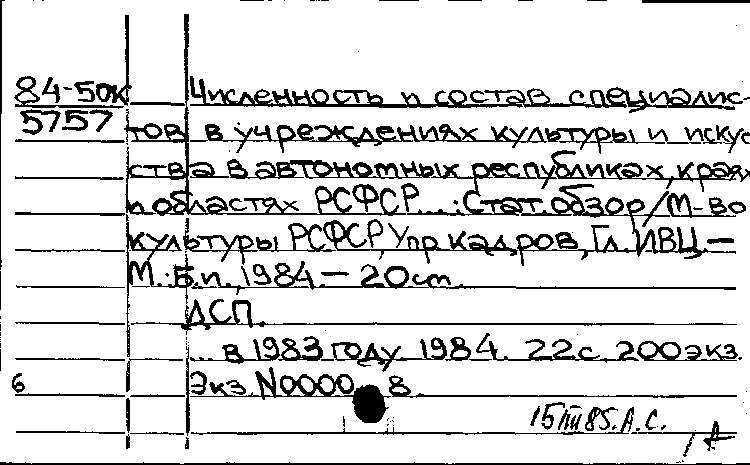 84-50к Численность и состав специалис-
5757 тов в учреждениях культуры и искус
ства в автономных республиках, краях
и областях РСФСР...: Стат. обзор/М-во
культуры РСФСР, Упр. кадров, Гл. ИВЦ.—
М.: Б.и., 1984.— 20 см.
ДСП.
... в 1983 году. 1984. 22 с. 200 экз.
6 Экз. N0000 8.
15 VIII 85. А.С.